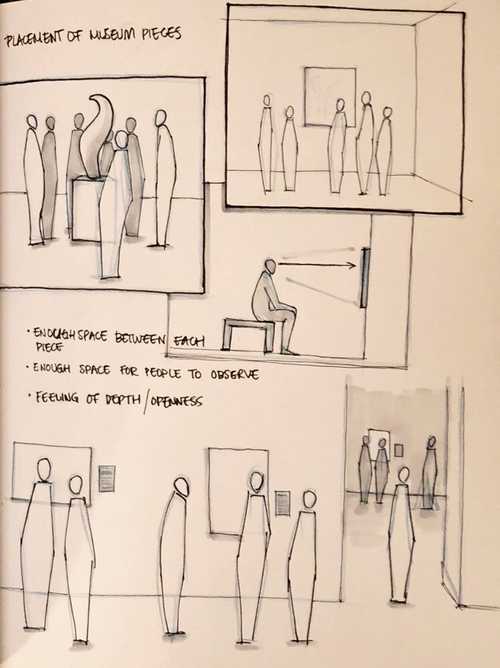 PLACEMENT OF MUSEUM PIECES
• ENOUGH SPACE BETWEEN EACH
PIECE
• ENOUGH SPACE FOR PEOPLE TO OBSERVE
• FEELING OF DEPTH/OPENNESS